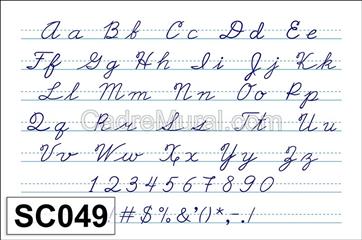 Aa Bb Cc Dd Ee
Ff Gg Hh Ii Jj Kk
Ll Mm Nn Oo Pp
CadreMural.com
Qq Rr Ss Tt Uu
Vv Ww Xx Yy Zz
1234567890
SC049 !/#$%&'()*,-./